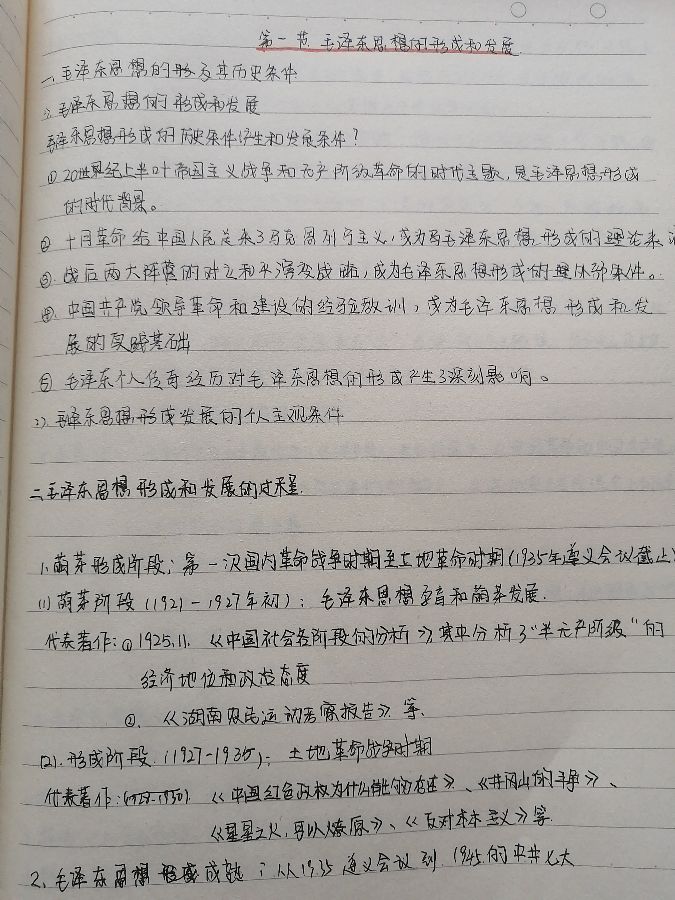 第一节 毛泽东思想的形成和发展
一、毛泽东思想的形及其历史条件
1、毛泽东思想的形成和发展
毛泽东思想形成的历史条件(产生和发展条件?
① 20世界纪上半叶帝国主义战争和无产阶级革命的时代主题,是毛泽东思想形成
的时代背景。
② 十月革命给中国人民送来了马克思列宁主义,成为毛泽东思想形成的理论来
③ 战后两大阵营的对立和平演变战略,成为毛泽东思想形成的外部条件。
④ 中国共产党领导革命和建设的经验教训,成为毛泽东思想形成和发
展的实践基础
⑤ 毛泽东个人传奇经历对毛泽东思想的形成产生了深刻影响。
2) 毛泽东思想形成发展的个人主观条件
二、毛泽东思想形成和发展的过程
1、萌芽形成阶段:第一次国内革命战争时期至土地革命时期(1935年遵义会议截止)
(1)萌芽阶段(1921-1927年初):毛泽东思想孕育和萌芽发展.
代表著作:① 1925.11.《中国社会各阶段的分析》其中分析了"半无产阶级"的
经济地位和政治态度
②.《湖南农民运动考察报告》等.
(2).形成阶段.(1927-1935);土地革命战争时期
代表著作:《中国红色政权为什么能够存在》、《井冈山的斗争》、
《星星之火,可以燎原》、《反对本本主义》等
2、毛泽东思想成熟:从1935遵义会议到1945的中共七大